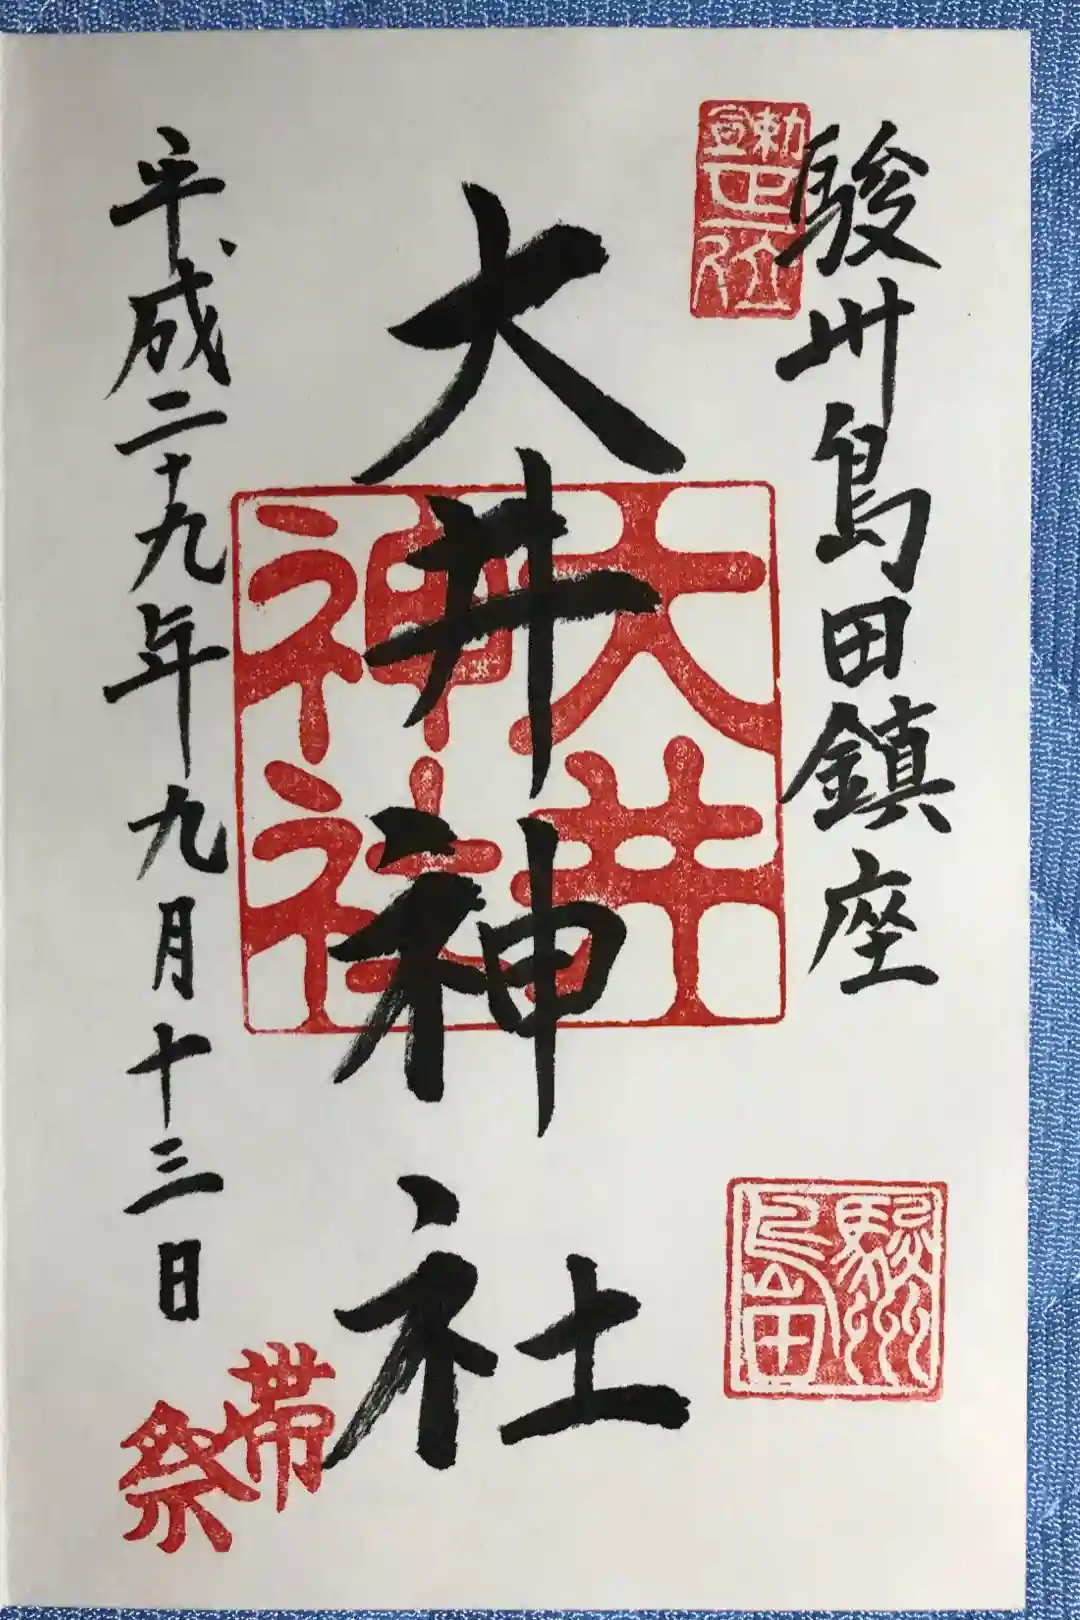 駿州島田鎮座
勅宣正位
駿州島田
大井神社
大井神社
平成二十九年九月十三日
帯祭